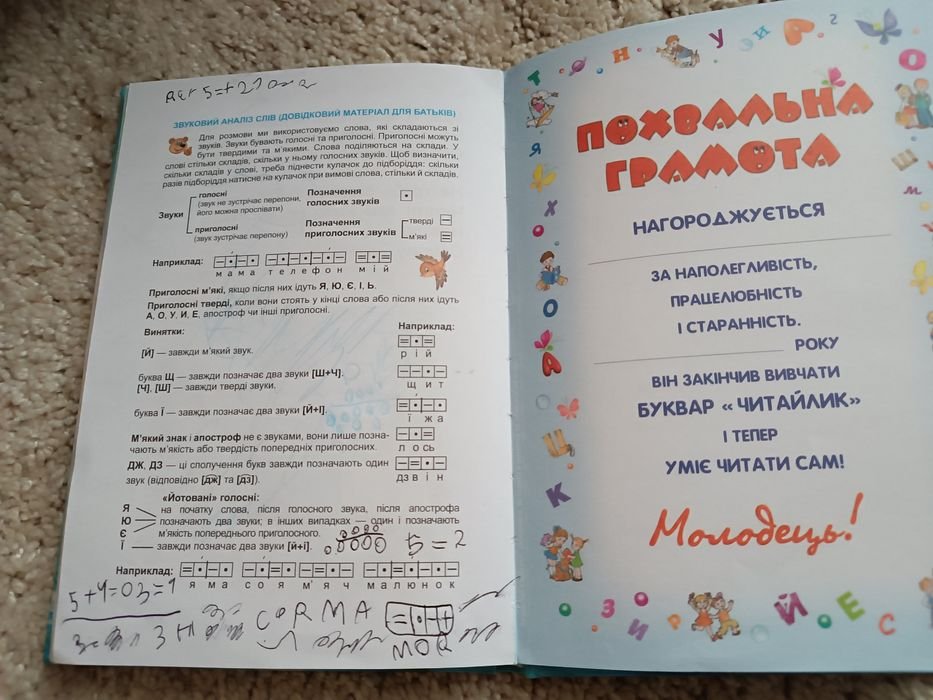 5=+2
ЗВУКОВИЙ АНАЛІЗ СЛІВ (ДОВІДКОВИЙ МАТЕРІАЛ ДЛЯ БАТЬКІВ)
Для розмови ми використовуємо слова, які складаються зі
звуків. Звуки бувають голосні та приголосні. Приголосні можуть
бути твердими та м'якими. Слова поділяються на склади. У
слові стільки складів, скільки у ньому голосних звуків. Щоб визначити,
скільки складів у слові, треба піднести кулачок до підборіддя: скільки
разів підборіддя натисне на кулачок при вимові слова, стільки й складів.
Звуки
голосні
(звук не зустрічає перепони,
його можна проспівати)
приголосні
(звук зустрічає перепону)
Позначення
голосних звуків
Позначення
приголосних звуків
тверді
м'які
Наприклад:
мама телефон мій
Приголосні м'які, якщо після них ідуть Я, Ю, Є, І, Ь.
Приголосні тверді, коли вони стоять у кінці слова або після них ідуть
А, О, У, И, Е, апостроф чи інші приголосні.
Винятки:
Наприклад:
[Й] — завжди м'який звук.
рій
буква Щ — завжди позначає два звуки [Ш+Ч].
[Ч], [Ш] — завжди тверді звуки.
щит
буква Ї — завжди позначає два звуки [Й+І].
їжа
М'який знак і апостроф не є звуками, вони лише позна-
чають м'якість або твердість попередніх приголосних.
лось
ДЖ, ДЗ — ці сполучення букв завжди позначають один
звук (відповідно [дж] та [дз]).
дзвін
«Йотовані» голосні:
Я
Ю
Є
на початку слова, після голосного звука, після апострофа
позначають два звуки; в інших випадках — один і позначають
м'якість попереднього приголосного.
Ї — завжди позначає два звуки [й+і].
5=2
Наприклад:
яма соя м'яч малюнок
5+4=03=1
CORMA
MOR
ПОХВАЛЬНА
ГРАМОТА
НАГОРОДЖУЄТЬСЯ
ЗА НАПОЛЕГЛИВІСТЬ,
ПРАЦЕЛЮБНІСТЬ
І СТАРАННІСТЬ.
РОКУ
ВІН ЗАКІНЧИВ ВИВЧАТИ
БУКВАР «ЧИТАЙЛИК»
І ТЕПЕР
УМІЄ ЧИТАТИ САМ!
Молодець!